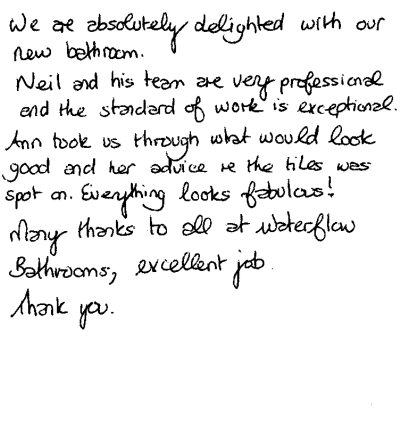 We are absolutely delighted with our
new bathroom.
Neil and his team are very professional
and the standard of work is exceptional.
Ann took us through what would look
good and her advice re the tiles was
spot on. Everything looks fabulous!
Many thanks to all at Waterflow
Bathrooms, excellent job.
Thank you.